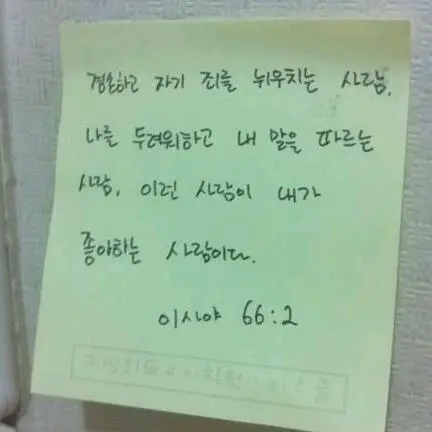 겸손하고 자기 죄를 뉘우치는 사람,
나를 두려워하고 내 말을 따르는
사람, 이런 사람이 내가
좋아하는 사람이다.
이사야 66:2